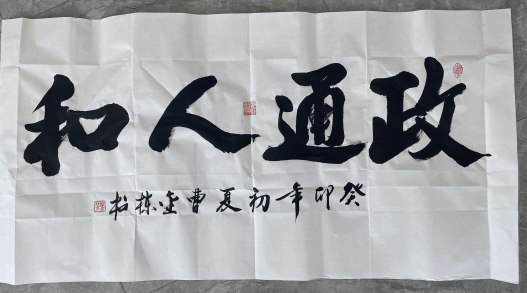 政通人和
癸卯年初夏曹金栋